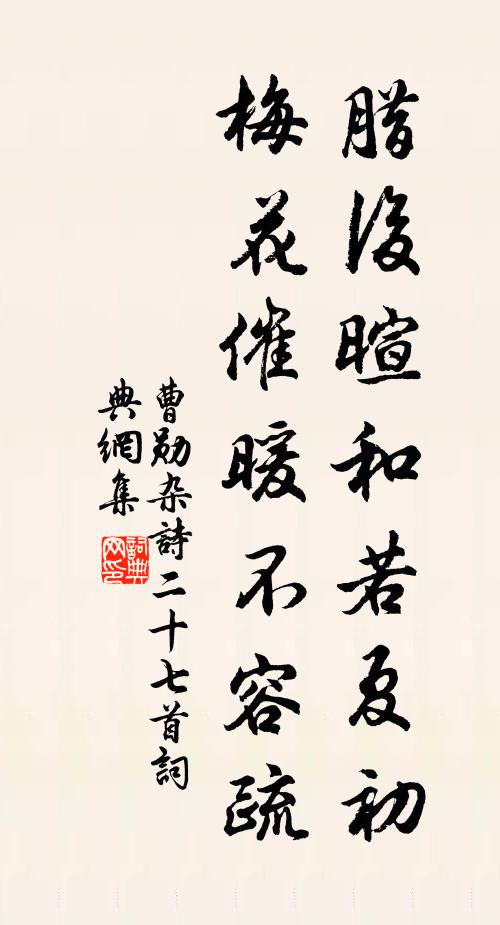 腊後暄和若夏初
梅花催暖不容疏
曹勛杂詩二十七首詞
典網集
詞典網印